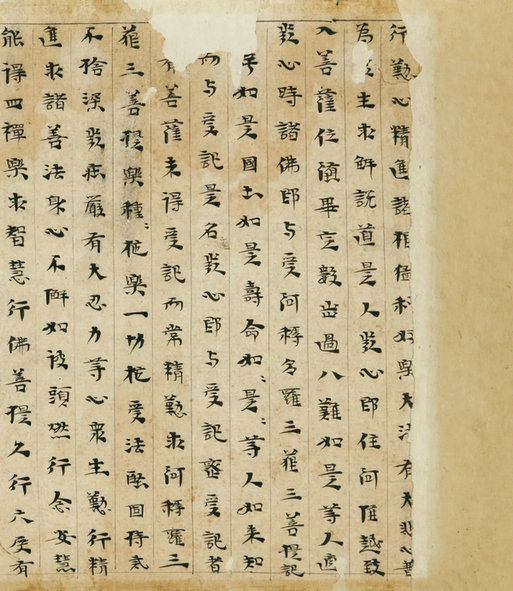 行勤心精進諸根猛利好樂大法有大悲心普
為生求解脫道是人發心即住阿惟越致
入菩薩位墮畢定數出過八難如是等人適
發心時諸佛即与受阿耨多羅三藐三菩提記
号如是國土如是壽命如〻是〻等人如来知
而与受記是名發心即与受記密受記者
有菩薩未得受記而常精勤求阿耨羅三
藐三菩提樂種〻施樂一切施受法堅固持戒
不捨深發莊嚴有大忍力等心衆生勤行精
進求諸善法身心不懈如救頭燃行念安慧
能得四禪樂求智慧行佛菩提久行六度有